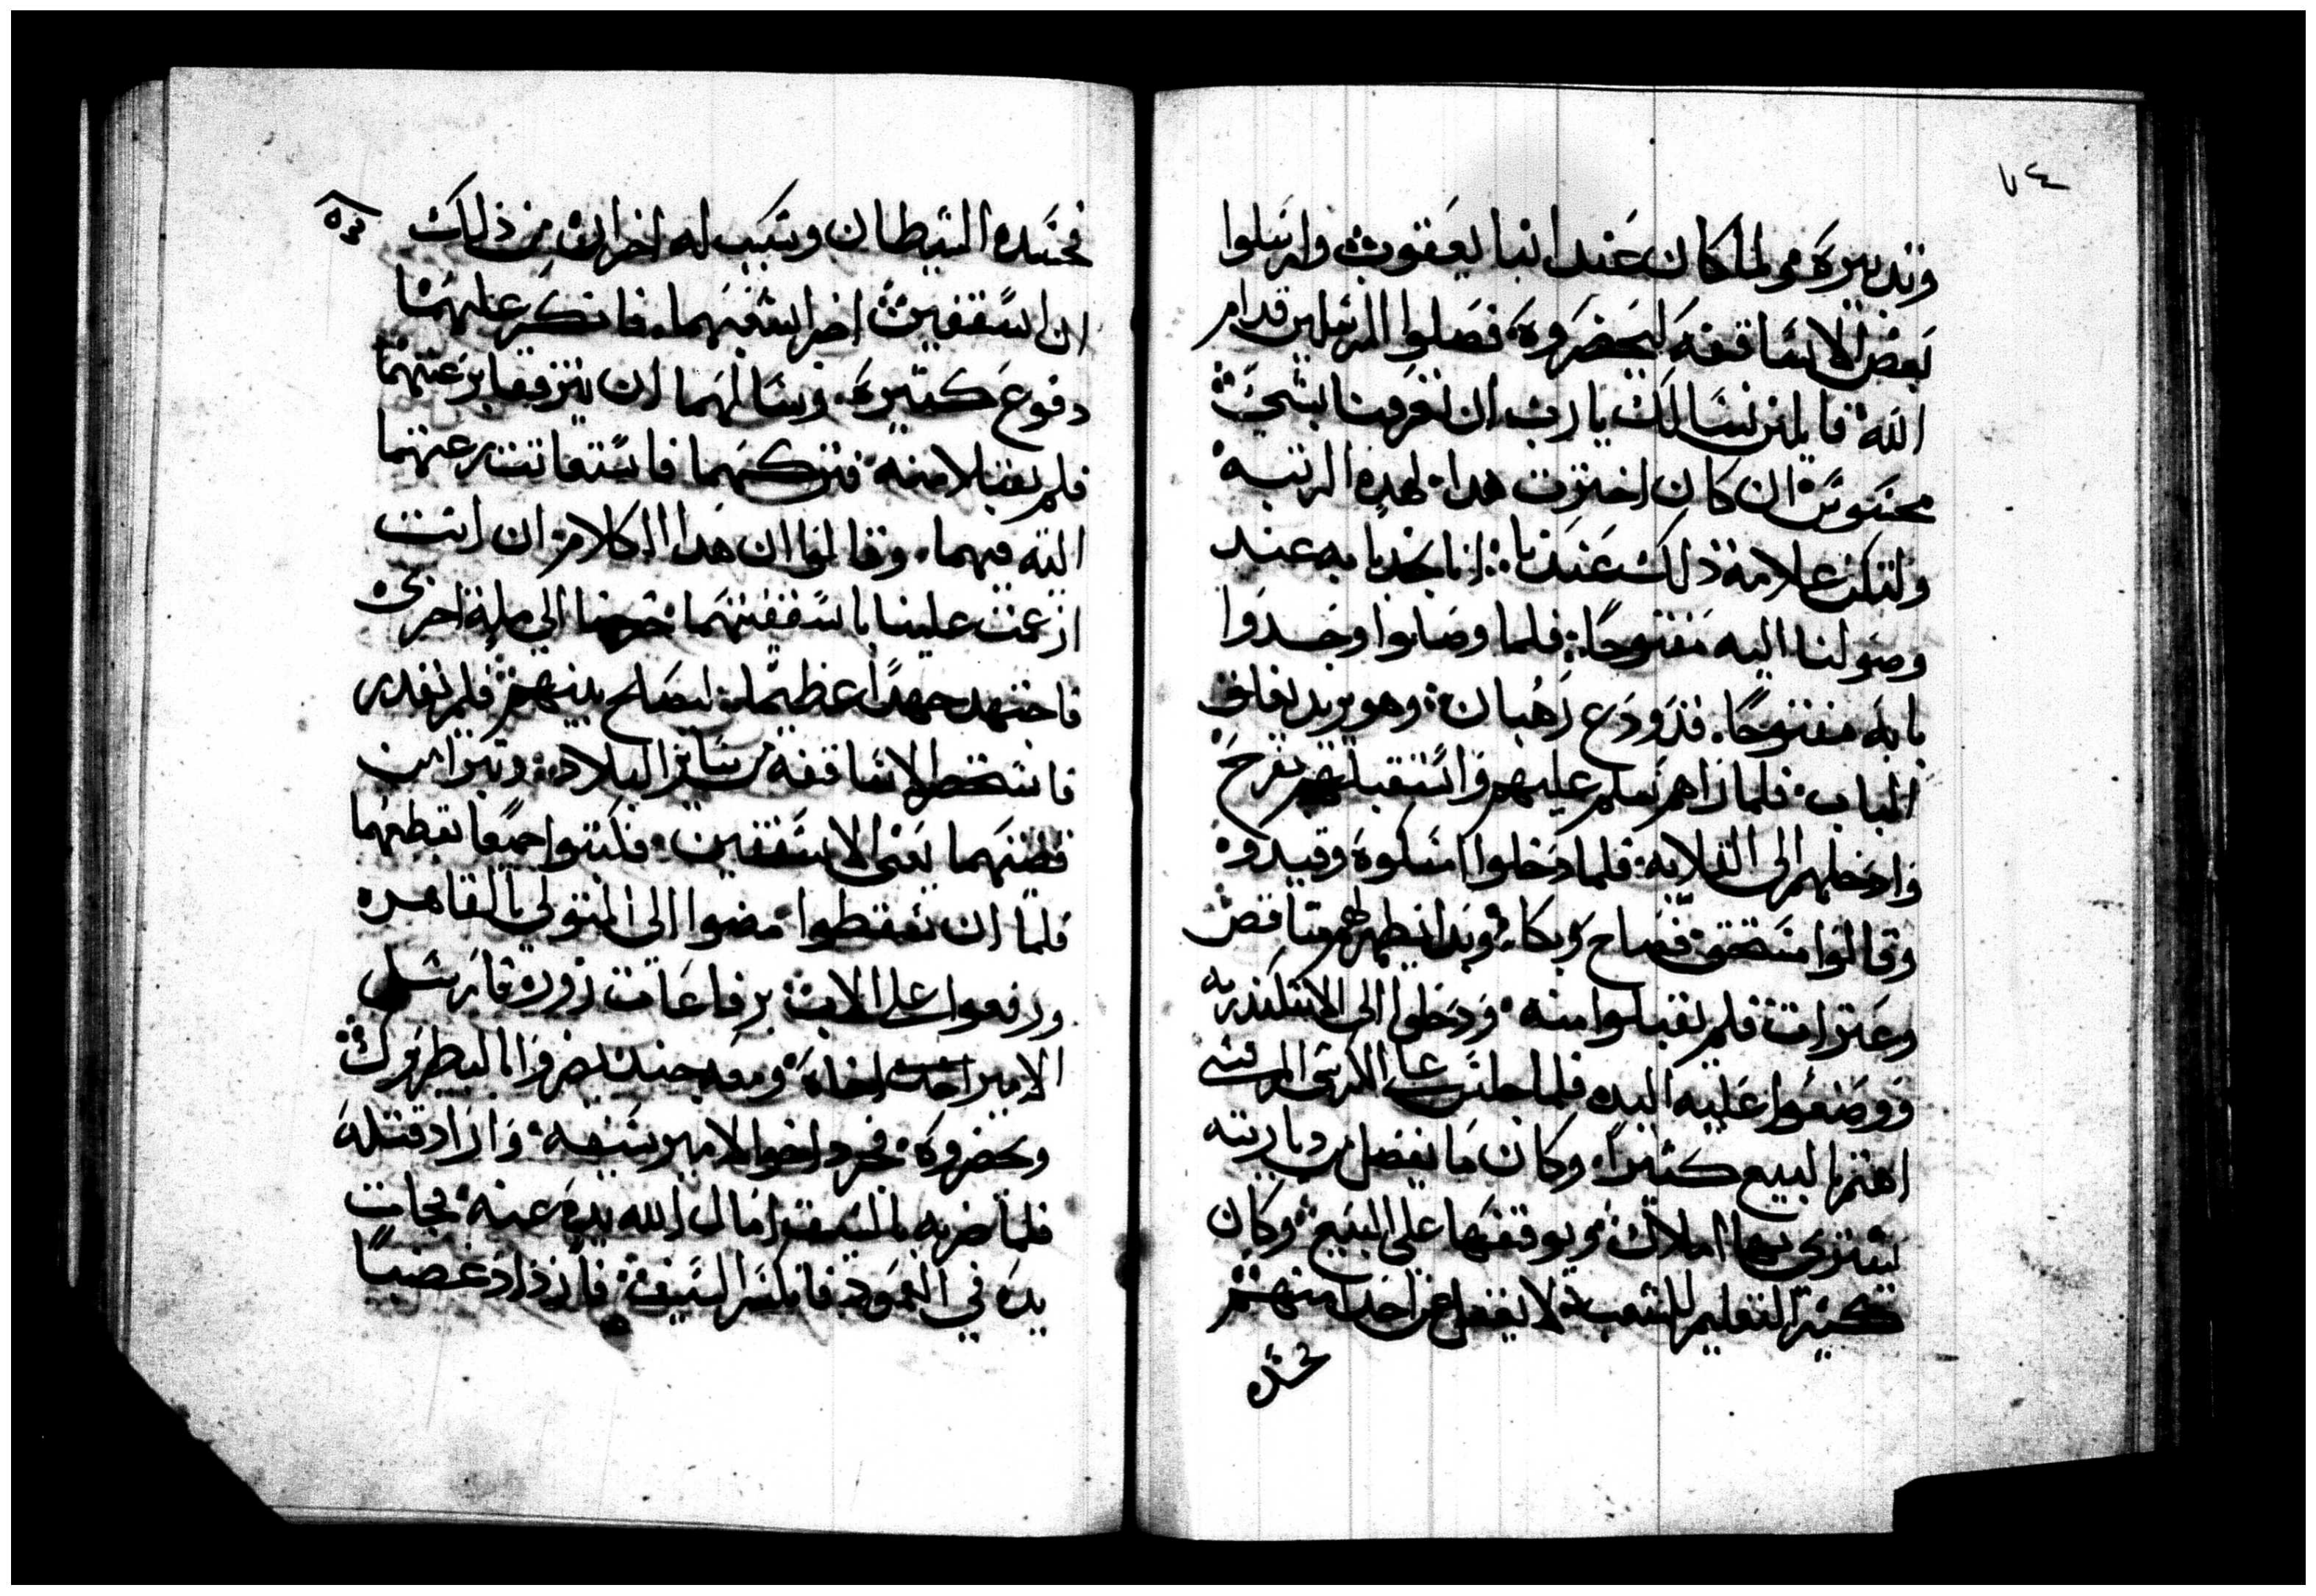 ٧٤
وتدبيره ولما كان عند انبا يعقوب وارسلوا
بعض الاساقفه ليحضروه فصلوا المرسلين قدام
الله قايلين نسالك يارب ان تعرفنا بشي
محسوس ان كان اخترت هدا لهده الرتبه
ولتكن علامة ذلك عندنا اننا نجد بابه عند
وصولنا اليه مفتوحا فلما وصلوا وجدوا
بابه مفتوحا قد ودع رهبان وهو يريد يغلق
الباب فلما راهم سلم عليهم واستقبلهم بفرح
وادخلهم الى القلايه فلما دخلوا امسكوه وقيدوه
وقالوا مستحق فصاح وبكا وبدا يظهر لهم مناقص
وعترات فلم يقبلوا منه ودخلوا الى الاسكندريه
ووضعوا عليه اليد فلما جلس على الكرسي المرقسي
اهتم بالبيع كثيرا وكان ما يفضل من دياريته
يشتري بها املاك ويوقفها على البيع وكان
كثير التعليم للشعب لا يغفل عن احدا منهم
فحسده
فحسده الشيطان وسبب له احزان من ذلك
ان اسقفين اضرا بشعبهما فانكر عليهما
دفوع كثيره وسالهما ان يترفقا برعيتهما
فلم يقبلا منه فتركهما فاستغاتت رعيتهما
اليه فيهما وقالوا ان هدا الكلام ان انت
ازغمت علينا باسقفيتهما خرجنا الى ملة اخرى
فاجتهد جهدا عظيما ليصلح بينهم فلم يقدر
فاستحضر الاساقفه من ساير البلاد وتبرا من
قضيتهما يعني الاسقفين فكتبوا جميعا بقطعهما
فلما ان تقطعوا مضوا الى المتولي بالقاهره
ورفعوا على الاب برفاعات زوره فارسل
الامير اخاه ومعه جند ليضروا بالبطريرك
ويحضروه فجرد اخو الامير سيفه واراد قتله
فلما ضربه بالسيف امال الله يده عنه فجات
يده في العمود فانكسر السيف فازداد غضبا